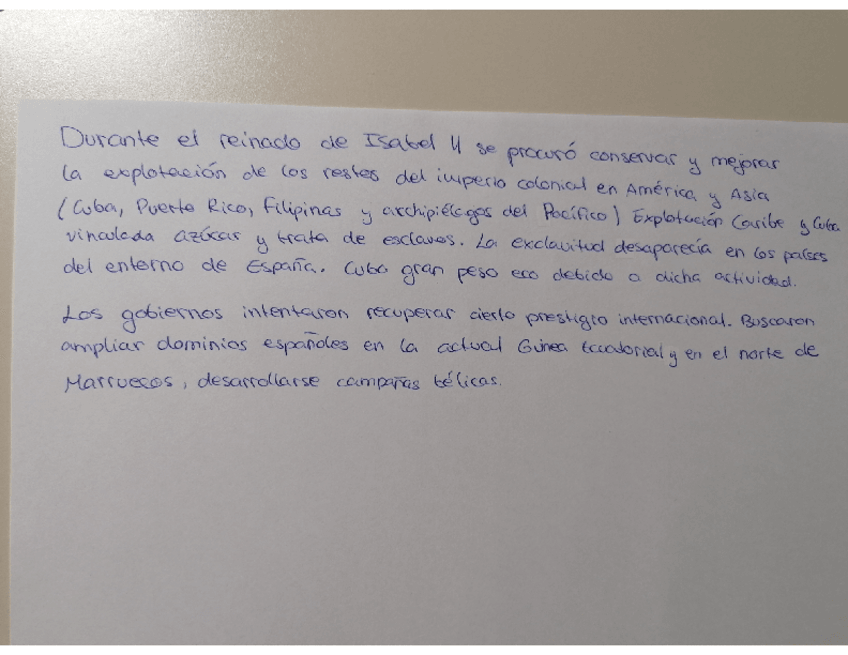 Durante el reinado de Isabel II se procuró conservar y mejorar
la explotación de los restos del imperio colonial en América y Asia
(Cuba, Puerto Rico, Filipinas y archipiélagos del Pacífico) Explotación Caribe y Cuba
vinculada azúcar y trata de esclavos. La exclavitud desaparecía en los países
del entorno de España. Cuba gran peso eco debido a dicha actividad.
Los gobiernos intentaron recuperar cierto prestigio internacional. Buscaron
ampliar dominios españoles en la actual Guinea Ecuatorial y en el norte de
Marruecos, desarrollarse campañas bélicas.